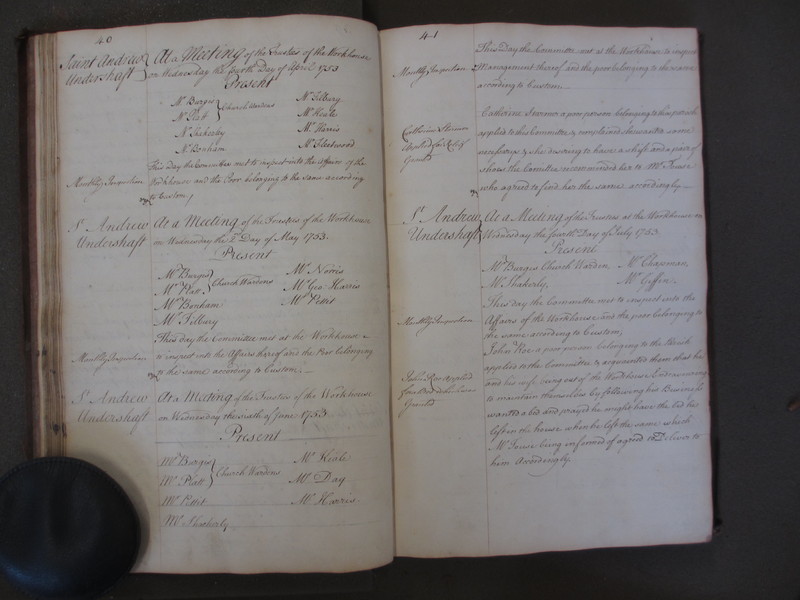 40
Saint Andrew Undershaft
At a Meeting of the Trustees of the Workhouse
on Wednesday the fourth Day of April 1753
Present
Mr Burges Mr Tilbury
Mr Platt Church Wardens Mr Keale
Mr Shakesby Mr Harris
Mr Bonham Mr Fleetwood
This day the Committee met to inspect into the affairs of the
Monthly Inspection
Workhouse and the Poor belonging to the same according
to Custom
St Andrew Undershaft
At a Meeting of the Trustees of the Workhouse
on Wednesday the 2d Day of May 1753.
Present
Mr Burges Mr Norris
Mr Platt Church Wardens Mr Geo Harris
Mr Bonham Mr Pettit
Mr Tilbury
This day the Committee met at the Workhouse
Monthly Inspection
to inspect into the Affairs thereof and the Poor belonging
to the same according to Custom.
St Andrew Undershaft
At a Meeting of the Trustees of the Workhouse
on Wednesday the sixth Day of June 1753
Present
Mr Burges Mr Keale
Mr Platt Church Wardens Mr Day
Mr Pettit Mr Harris
Mr Shakerly
41
This Day the Committee met at the Workhouse to inspect
Monthly Inspection
Management thereof and the poor belonging to the same
according to Custom
Catherine a poor person belonging to this parish
applied to this Committee &
she desiring to have a shift and a pair of
shoes the Committee recommended her to Mr Touse
who agreed to find her the same accordingly
St Andrew Undershaft
At a Meeting of the Trustees at the Workhouse on
Wednesday the fourth Day of July 1753
Present
Mr Burges Church Warden Mr Chapman
Mr Shakerly Mr Giffin
This day the Committee met to inspect into the
Monthly Inspection
Affairs of the Workhouse and the poor belonging to
the same according to Custom,
John Roe a poor person belonging to the Parish
applied to the Committee & acquainted them that he
and his wife being out of the Workhouse Endeavouring
to maintain themselves by following his Business
wanted a bed and prayed he might have the bed he
left in the house when he left the same which
Mr Touse being informed of agreed to Deliver to
him Accordingly